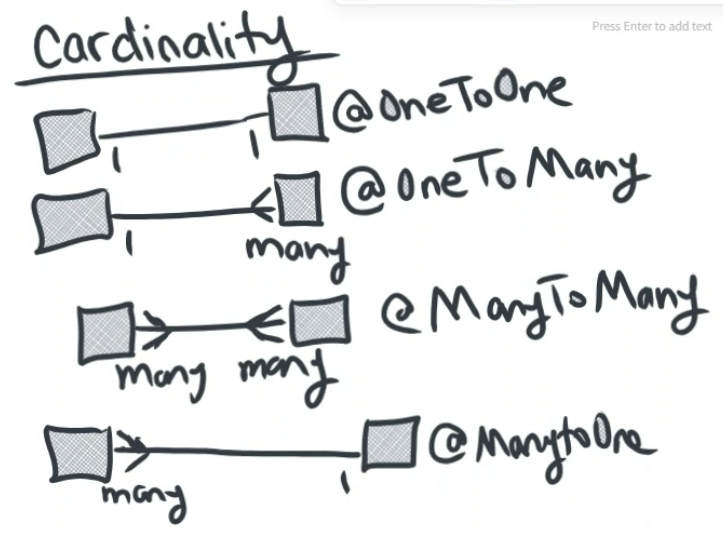 Press Enter to add text
Cardinality
@OneToOne
1 1
@OneToMany
1 many
@ManyToMany
many many
@ManytoOne
many 1